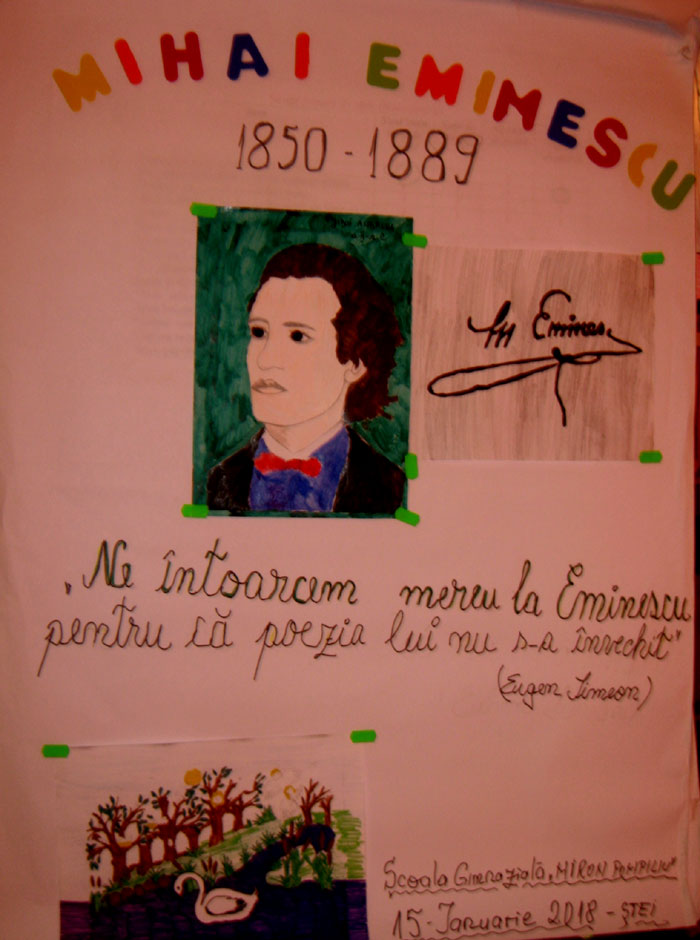 MIHAI EMINESCU
1850 - 1889
M Emines
„Ne întoarcem mereu la Eminescu
pentru că poezia lui nu s-a învechit"
(Eugen Simeon)
Școala Gimnazială „MIRON POMPILIU"
15-Ianuarie 2018 - ȘTEI